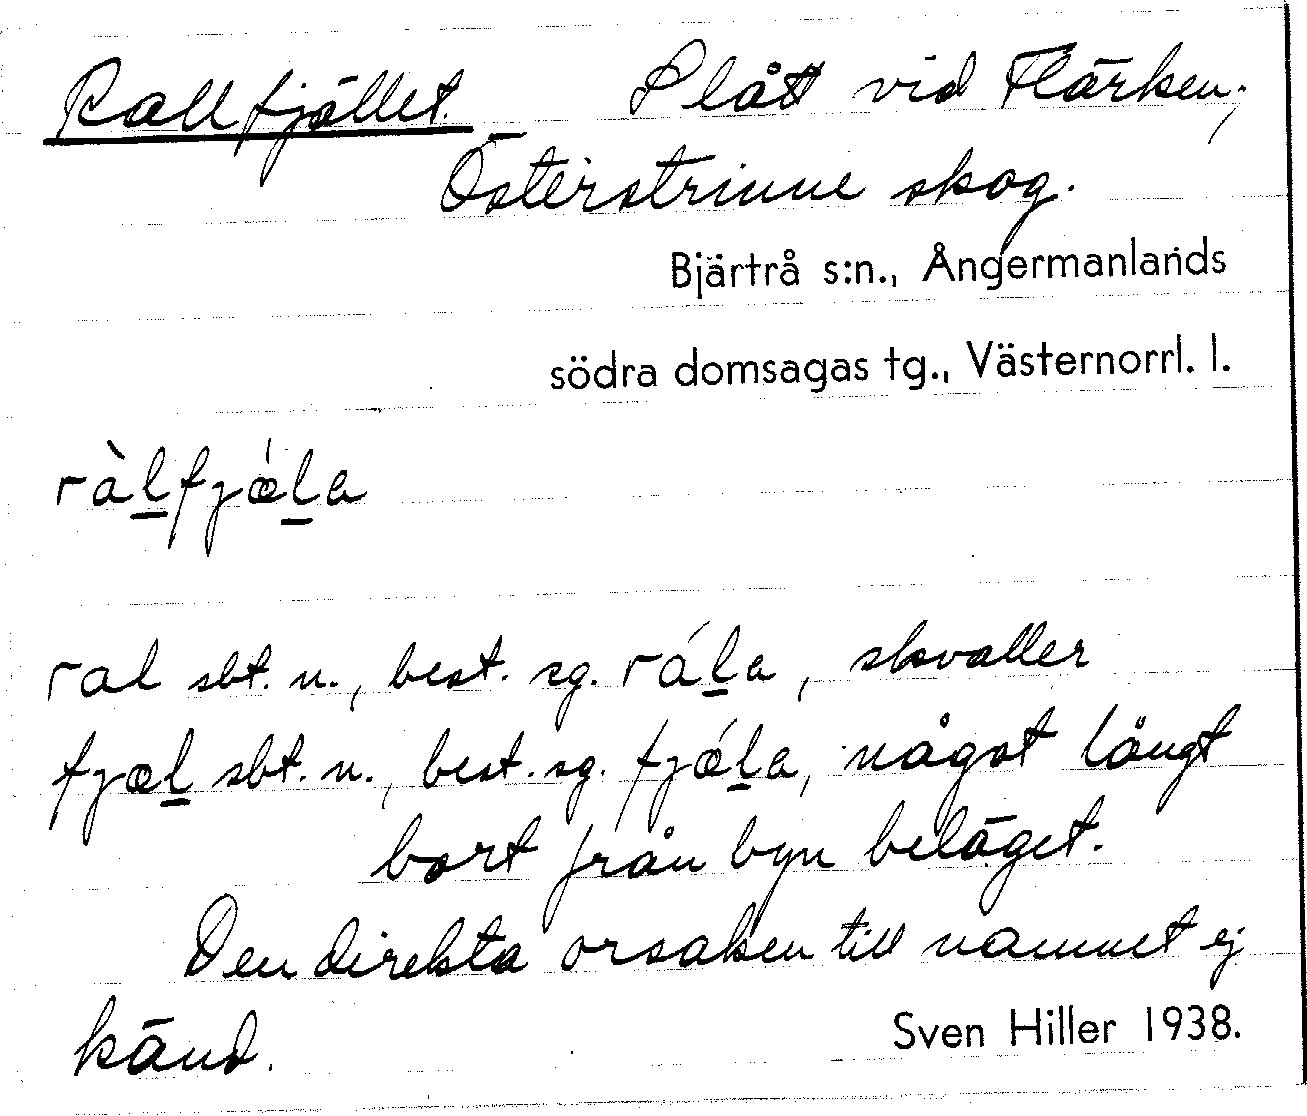 Rallfjället. Slått vid Flärken;
Österstrinne skog.
Bjärtrå s:n., Ångermanlands
södra domsagas tg., Västernorrl. l.
ràl̲fjǽl̲a
ral sbt. n., best. sg. rál̲a, skvaller
fjæl̲ sbt. n., best. sg. fjǽl̲a, något långt
bort från byn beläget.
Den direkta orsaken till namnet ej
känd.
Sven Hiller 1938.